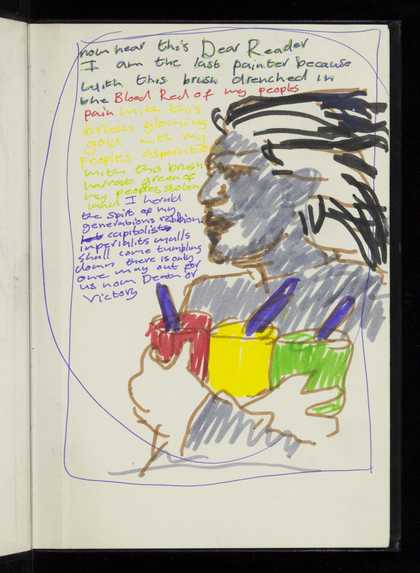 now hear this Dear Reader
I am the last painter because
with this brush drenched in
the Blood Red of my peoples
pain with this
brush glowing
gold with my
peoples aspirations
with this brush
harvest green of
my peoples stolen
land I herald
the spirt of my
generations
capitalists
imperilists walls
shall come tumbling
down there is only
one way out for
us now Death or
Victory